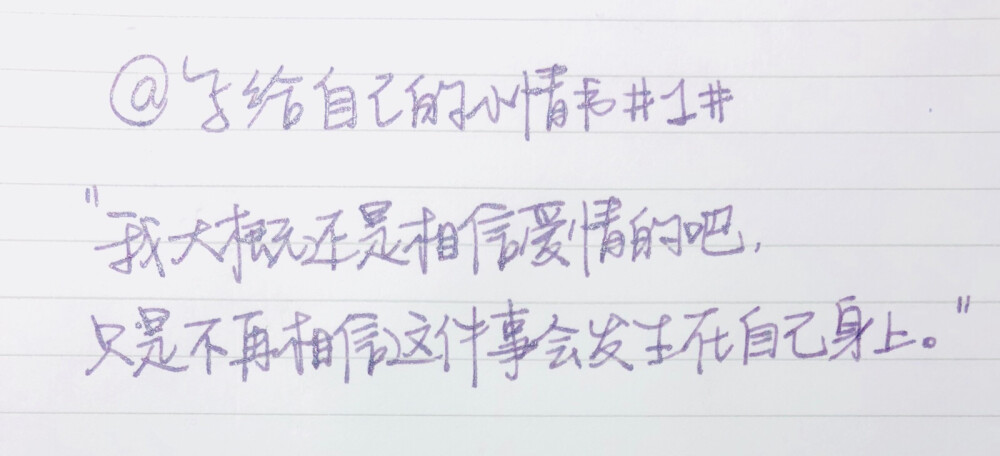 @写给自己的小情书#1#
"我大概还是相信爱情的吧,
只是不再相信这件事会发生在自己身上。"